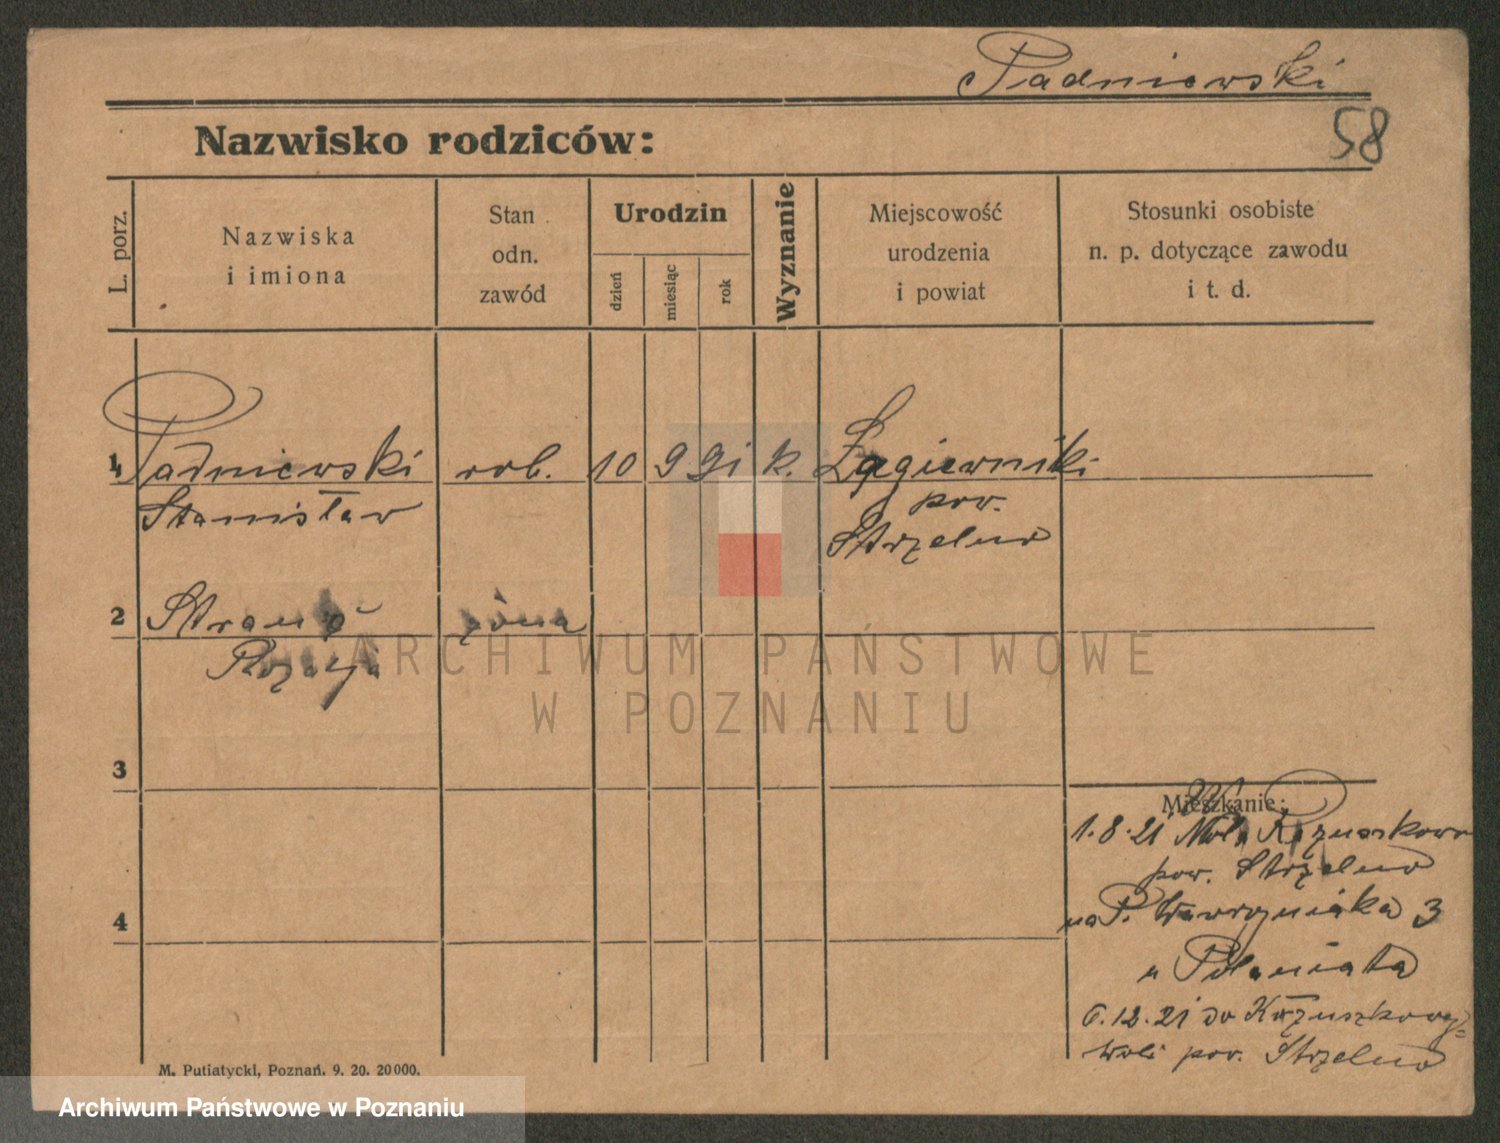 Padniewski
58
Nazwisko rodziców:
L. porz.
Nazwiska
i imiona
Stan
odn.
zawód
Urodzin
dzień
miesiąc
rok
Wyznanie
Miejscowość
urodzenia
i powiat
Stosunki osobiste
n. p. dotyczące zawodu
i t. d.
1 Padniewski rob. 10 9 91 k. Łagiewniki
Stanisław pow.
Strzelno
2 żona
Rozalja
3
4
Mieszkanie:
1.8.21
pow. Strzelno
na P. Wawrzyniaka 3
u
6.12.21 do Kożuszkowej=
woli pow. Strzelno
M. Putiatycki, Poznań. 9. 20. 20000.
ARCHIWUM PAŃSTWOWE
W POZNANIU
Archiwum Państwowe w Poznaniu